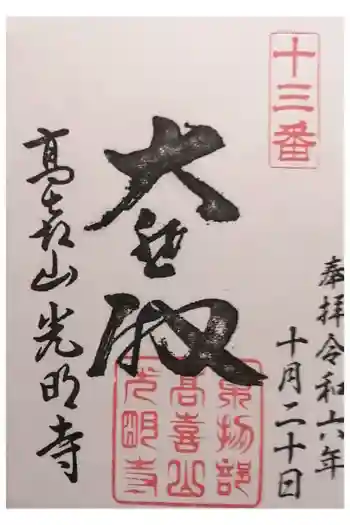 十三番
奉拝令和六年
十月二十日
大悲殿
高喜山光明寺
東物部
高喜山
光明寺